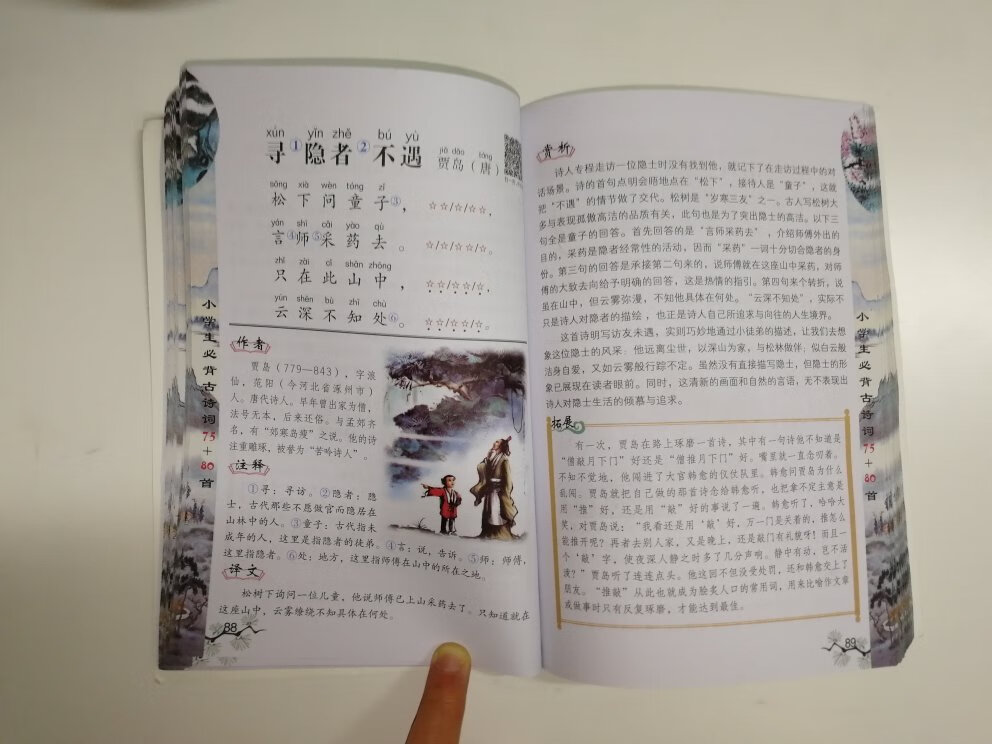 xún yīn zhě bú yù
寻①隐者②不遇
jiǎ dǎo táng
贾岛（唐）
sōng xià wèn tóng zǐ
松下问童子③，☆☆/☆/☆☆，
yán shī cǎi yào qù
言④师⑤采药去。☆/☆/☆☆/☆。
zhǐ zài cǐ shān zhōng
只在此山中，☆☆/☆☆/☆，
yún shēn bù zhī chù
云深不知处⑥。☆☆/☆☆/☆。
作者
贾岛（779—843），字浪
仙，范阳（今河北省涿州市）
人。唐代诗人。早年曾出家为僧，
法号无本，后来还俗。与孟郊齐
名，有“郊寒岛瘦”之说。他的诗
注重雕琢，被誉为“苦吟诗人”。
注释
①寻：寻访。②隐者：隐
士，古代那些不愿做官而隐居在
山林中的人。③童子：古代指未
成年的人，这里是指隐者的徒弟。④言：说，告诉。⑤师：师傅，
这里指隐者。⑥处：地方，这里指师傅在山中的所在之地。
译文
松树下询问一位儿童，他说师傅已上山采药去了。只知道就在
这座山中，云雾缭绕不知具体在何处。
88
小学生必背古诗词75+80首
赏析
诗人专程走访一位隐士时没有找到他，就记下了在走访过程中的对
话场景。诗的首句点明会晤地点在“松下”，接待人是“童子”，这就
把“不遇”的情节做了交代。松树是“岁寒三友”之一。古人写松树大
多与表现孤傲高洁的品质有关，此句也是为了突出隐士的高洁。以下三
句全是童子的回答。首先回答的是“言师采药去”，介绍师傅外出的
目的，采药是隐者经常性的活动，因而“采药”一词十分切合隐者的身
份。第三句的回答是承接第二句来的，说师傅就在这座山中采药，对师
傅的大致去向给予明确的回答，这是热情的指引。第四句来个转折，说
虽在山中，但云雾弥漫，不知他具体在何处。“云深不知处”，实际不
只是诗人对隐者的描绘，也正是诗人自己所追求与向往的人生境界。
这首诗明写访友未遇，实则巧妙地通过小徒弟的描述，让我们去想
象这位隐士的风采：他远离尘世，以深山为家，与松林做伴；似白云般
洁身自爱，又如云雾般行踪不定。虽然没有直接描写隐士，但隐士的形
象已展现在读者眼前。同时，这清新的画面和自然的言语，无不表现出
诗人对隐士生活的倾慕与追求。
拓展
有一次，贾岛在路上琢磨一首诗，其中有一句诗他不知道是
“僧敲月下门”好还是“僧推月下门”好。嘴里就一直念叨着。
不知不觉地，他闯进了大官韩愈的仪仗队里。韩愈问贾岛为什么
乱闯。贾岛就把自己做的那首诗念给韩愈听，也把拿不定主意是
用“推”好，还是用“敲”好的事说了一遍。韩愈听了，哈哈大
笑，对贾岛说：“我看还是用‘敲’好，万一门是关着的，推怎么
能推开呢？再者去别人家，又是晚上，还是敲门有礼貌呀！而且一
个‘敲’字，使夜深人静之时多了几分声响。静中有动，岂不活
泼？”贾岛听了连连点头。他这回不但没受处罚，还和韩愈交上了
朋友。“推敲”从此他就成为脍炙人口的常用词，用来比喻作文章
或做事时只有反复琢磨，才能达到最佳。
89
小学生必背古诗词75+80首